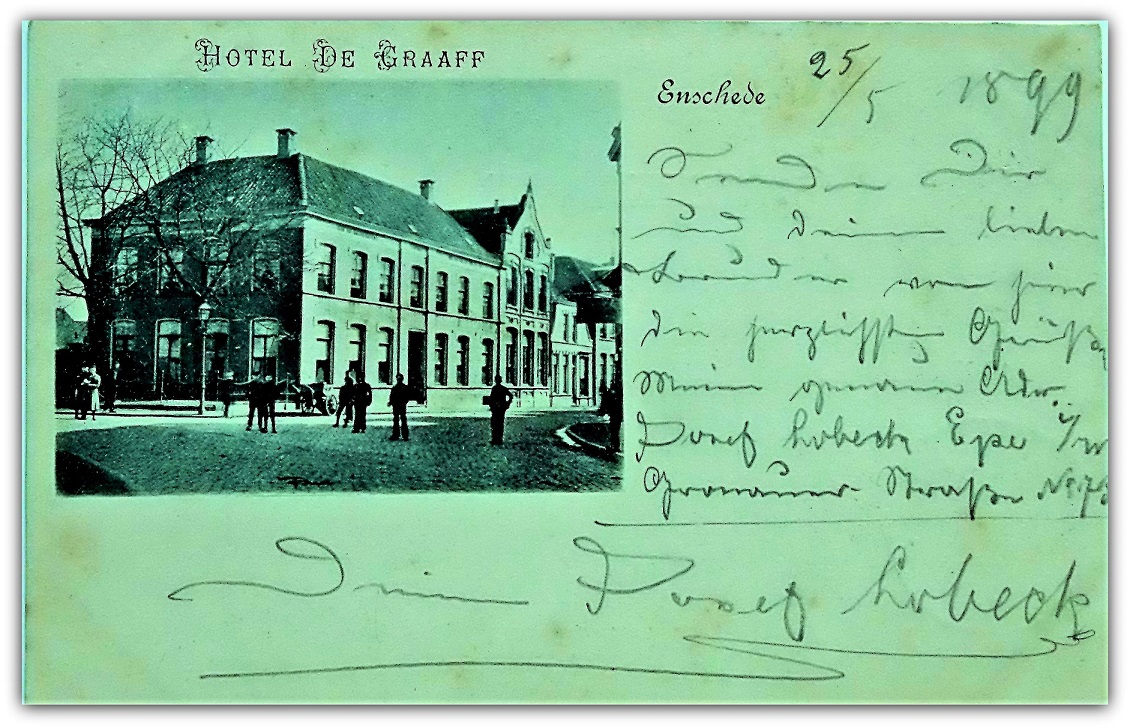 HOTEL DE GRAAFF
Enschede 25/5 1899
Sende Dir
und deinen lieben
Bruder von hier
die herzlichsten Grüße
Meine genaue Adr.
Josef Lobeck Epe i/W
Gronauer Straße No 73
Dein Josef Lobeck